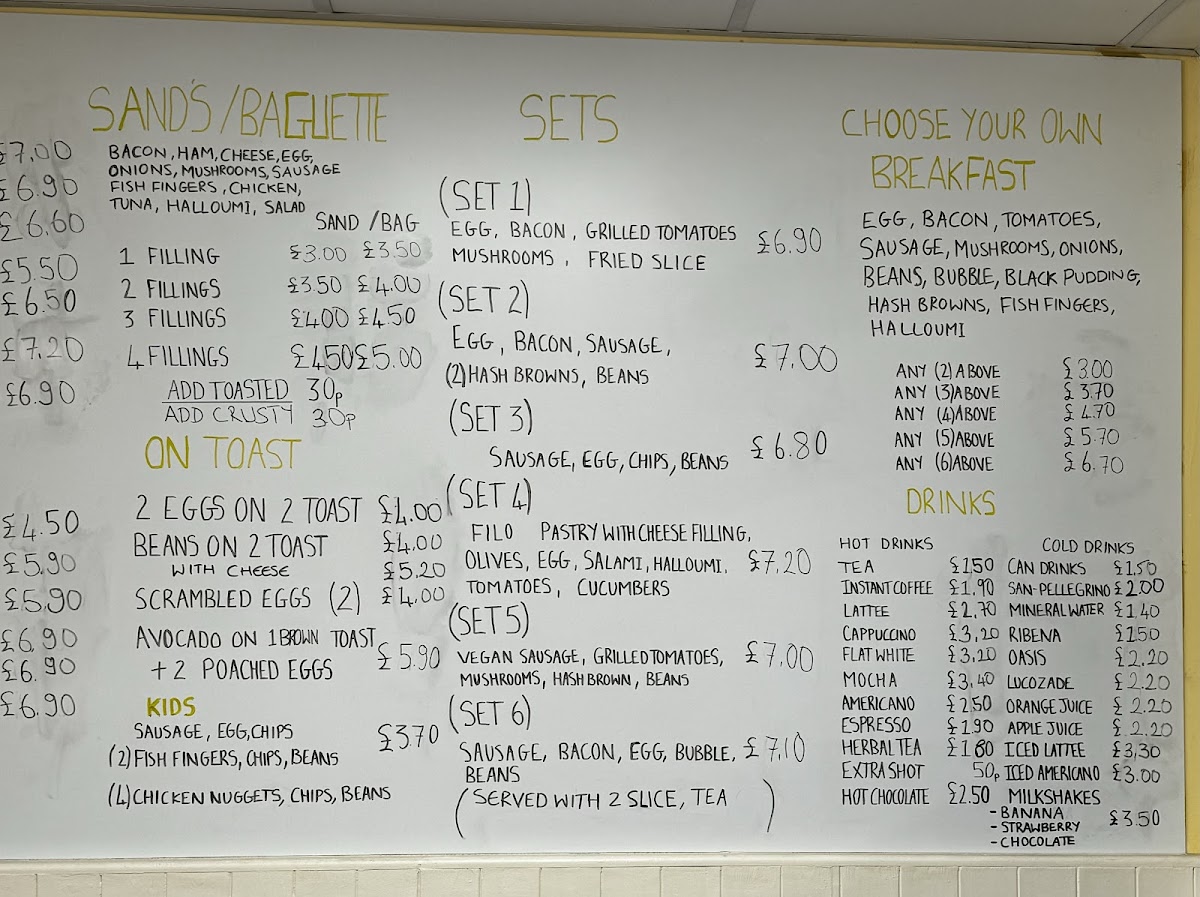 £7.00
£6.90
£6.60
£5.50
£6.50
£7.20
£6.90
£4.50
£5.90
£5.90
£6.90
£6.90
£6.90
SAND'S/BAGUETTE
BACON, HAM, CHEESE, EGG,
ONIONS, MUSHROOMS, SAUSAGE
FISH FINGERS, CHICKEN,
TUNA, HALLOUMI, SALAD
SAND /BAG
1 FILLING £3.00 £3.50
2 FILLINGS £3.50 £4.00
3 FILLINGS £4.00 £4.50
4 FILLINGS £4.50 £5.00
ADD TOASTED 30p
ADD CRUSTY 30p
ON TOAST
2 EGGS ON 2 TOAST £4.00
BEANS ON 2 TOAST £4.00
WITH CHEESE £5.20
SCRAMBLED EGGS (2) £4.00
AVOCADO ON 1 BROWN TOAST
+ 2 POACHED EGGS £5.90
KIDS
SAUSAGE, EGG, CHIPS £3.70
(2) FISH FINGERS, CHIPS, BEANS
(4) CHICKEN NUGGETS, CHIPS, BEANS
SETS
(SET 1)
EGG, BACON, GRILLED TOMATOES £6.90
MUSHROOMS, FRIED SLICE
(SET 2)
EGG, BACON, SAUSAGE, £7.00
(2) HASH BROWNS, BEANS
(SET 3)
SAUSAGE, EGG, CHIPS, BEANS £6.80
(SET 4)
FILO PASTRY WITH CHEESE FILLING,
OLIVES, EGG, SALAMI, HALLOUMI, £7.20
TOMATOES, CUCUMBERS
(SET 5)
VEGAN SAUSAGE, GRILLED TOMATOES, £7.00
MUSHROOMS, HASH BROWN, BEANS
(SET 6)
SAUSAGE, BACON, EGG, BUBBLE, £7.10
BEANS
(SERVED WITH 2 SLICE, TEA)
CHOOSE YOUR OWN
BREAKFAST
EGG, BACON, TOMATOES,
SAUSAGE, MUSHROOMS, ONIONS,
BEANS, BUBBLE, BLACK PUDDING,
HASH BROWNS, FISH FINGERS,
HALLOUMI
ANY (2) ABOVE £3.00
ANY (3) ABOVE £3.70
ANY (4) ABOVE £4.70
ANY (5) ABOVE £5.70
ANY (6) ABOVE £6.70
DRINKS
HOT DRINKS
TEA £1.50
INSTANT COFFEE £1.90
LATTEE £2.70
CAPPUCCINO £3,20
FLAT WHITE £3.20
MOCHA £3,40
AMERICANO £2.50
ESPRESSO £1.90
HERBAL TEA £1.80
EXTRA SHOT 50p
HOT CHOCOLATE £2.50
COLD DRINKS
CAN DRINKS £1.50
SAN-PELLEGRINO £2.00
MINERAL WATER £1.40
RIBENA £1.50
OASIS £2.20
LUCOZADE £2.20
ORANGE JUICE £2.20
APPLE JUICE £2.20
ICED LATTEE £3,30
ICED AMERICANO £3.00
MILKSHAKES
- BANANA
- STRAWBERRY £3.50
- CHOCOLATE